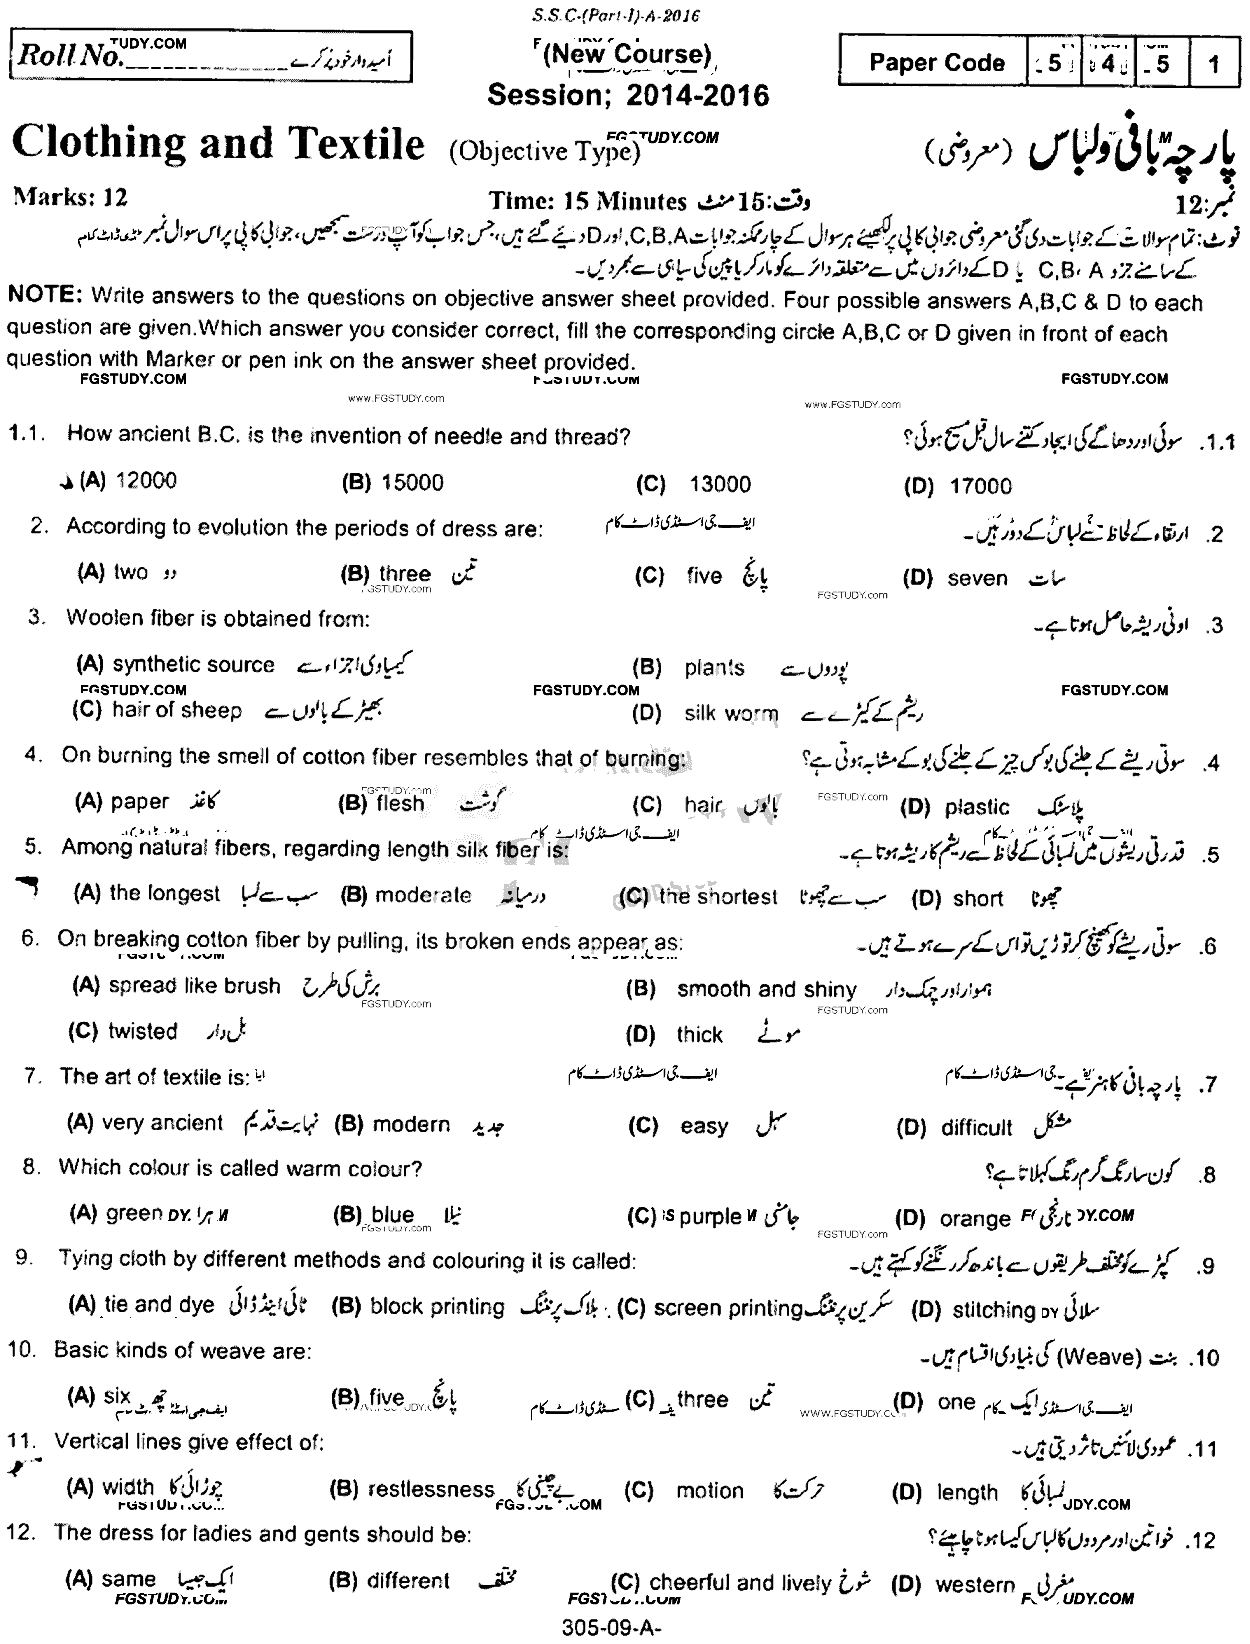 S.S.C-(Part-I)-A-2016
Roll No. ____________ امیدوار خود پُر کرے
(New Course)
Paper Code 5 4 5 1
Session; 2014-2016
Clothing and Textile (Objective Type) FGSTUDY.COM پارچہ بافی ولباس (معروضی)
Marks: 12 Time: 15 Minutes وقت:15 منٹ نمبر:12
نوٹ: تمام سوالات کے جوابات دی گئی معروضی جوابی کاپی پر لکھیئے ہر سوال کے چار ممکنہ جوابات C,B,A اور D دیئے گئے ہیں، جس جواب کو آپ درست سمجھیں، جوابی کاپی پر اس سوال نمبر
کے سامنے جزو C,B, A یا D کے دائروں میں سے متعلقہ دائرے کو مارکر یا پین کی سیاہی سے بھر دیں۔
NOTE: Write answers to the questions on objective answer sheet provided. Four possible answers A,B,C & D to each
question are given.Which answer you consider correct, fill the corresponding circle A,B,C or D given in front of each
question with Marker or pen ink on the answer sheet provided.
FGSTUDY.COM FGSTUDY.COM FGSTUDY.COM
www.FGSTUDY.com www.FGSTUDY.com
1.1. How ancient B.C. is the invention of needle and thread? سوئی اور دھاگے کی ایجاد کتنے سال قبل مسیح ہوئی؟ .1.1
(A) 12000 (B) 15000 (C) 13000 (D) 17000
2. According to evolution the periods of dress are: ایف جی اسٹڈی ڈاٹ کام ارتقاء کے لحاظ سے لباس کے دور ہیں۔ .2
(A) two دو (B) three تین (C) five پانچ (D) seven سات
FGSTUDY.com FGSTUDY.com
3. Woolen fiber is obtained from: اونی ریشہ حاصل ہوتا ہے۔ .3
(A) synthetic source کیمیاوی اجزاء سے (B) plants پودوں سے
FGSTUDY.COM FGSTUDY.COM FGSTUDY.COM
(C) hair of sheep بھیڑ کے بالوں سے (D) silk worm ریشم کے کیڑے سے
4. On burning the smell of cotton fiber resembles that of burning: سوتی ریشے کے جلنے کی بو کس چیز کے جلنے کی بو کے مشابہ ہوتی ہے؟ .4
(A) paper کاغذ (B) flesh گوشت (C) hair بالوں (D) plastic پلاسٹک
FGSTUDY.com FGSTUDY.com
ایف جی اسٹڈی ڈاٹ کام
5. Among natural fibers, regarding length silk fiber is: قدرتی ریشوں میں لمبائی کے لحاظ سے ریشم کا ریشہ ہوتا ہے۔ .5
(A) the longest سب سے لمبا (B) moderate درمیانہ (C) the shortest سب سے چھوٹا (D) short چھوٹا
6. On breaking cotton fiber by pulling, its broken ends appear as: سوتی ریشے کو کھینچ کر توڑیں تو اس کے سرے ہوتے ہیں۔ .6
(A) spread like brush برش کی طرح (B) smooth and shiny ہموار اور چمک دار
FGSTUDY.com FGSTUDY.com
(C) twisted بل دار (D) thick موٹے
7. The art of textile is: ایف جی اسٹڈی ڈاٹ کام پارچہ بافی کا ہنر ہے۔ .7
(A) very ancient نہایت قدیم (B) modern جدید (C) easy سہل (D) difficult مشکل
8. Which colour is called warm colour? کون سا رنگ گرم رنگ کہلاتا ہے؟ .8
(A) green ہرا (B) blue نیلا (C) purple جامنی (D) orange نارنجی
FGSTUDY.com FGSTUDY.com
9. Tying cloth by different methods and colouring it is called: کپڑے کو مختلف طریقوں سے باندھ کر رنگنے کو کہتے ہیں۔ .9
(A) tie and dye ٹائی اینڈ ڈائی (B) block printing بلاک پرنٹنگ (C) screen printing سکرین پرنٹنگ (D) stitching سلائی
10. Basic kinds of weave are: بنت (Weave) کی بنیادی اقسام ہیں۔ .10
(A) six چھ (B) five پانچ (C) three تین (D) one ایک
11. Vertical lines give effect of: عمودی لائنیں تاثر دیتی ہیں۔ .11
(A) width چوڑائی کا (B) restlessness بے چینی کا (C) motion حرکت کا (D) length لمبائی کا
12. The dress for ladies and gents should be: خواتین اور مردوں کا لباس کیسا ہونا چاہیئے؟ .12
(A) same ایک جیسا (B) different مختلف (C) cheerful and lively شوخ (D) western مغربی
305-09-A-